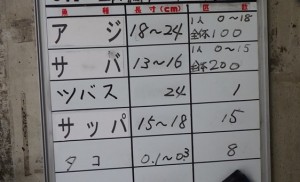 魚種 長寸(cm) 匹数
アジ 18〜24 1人 0〜18
全体100
サバ 13〜16 1人 0〜15
全体200
ツバス 24 1
サッパ 15〜18 15
タコ 0.1〜0.3 8